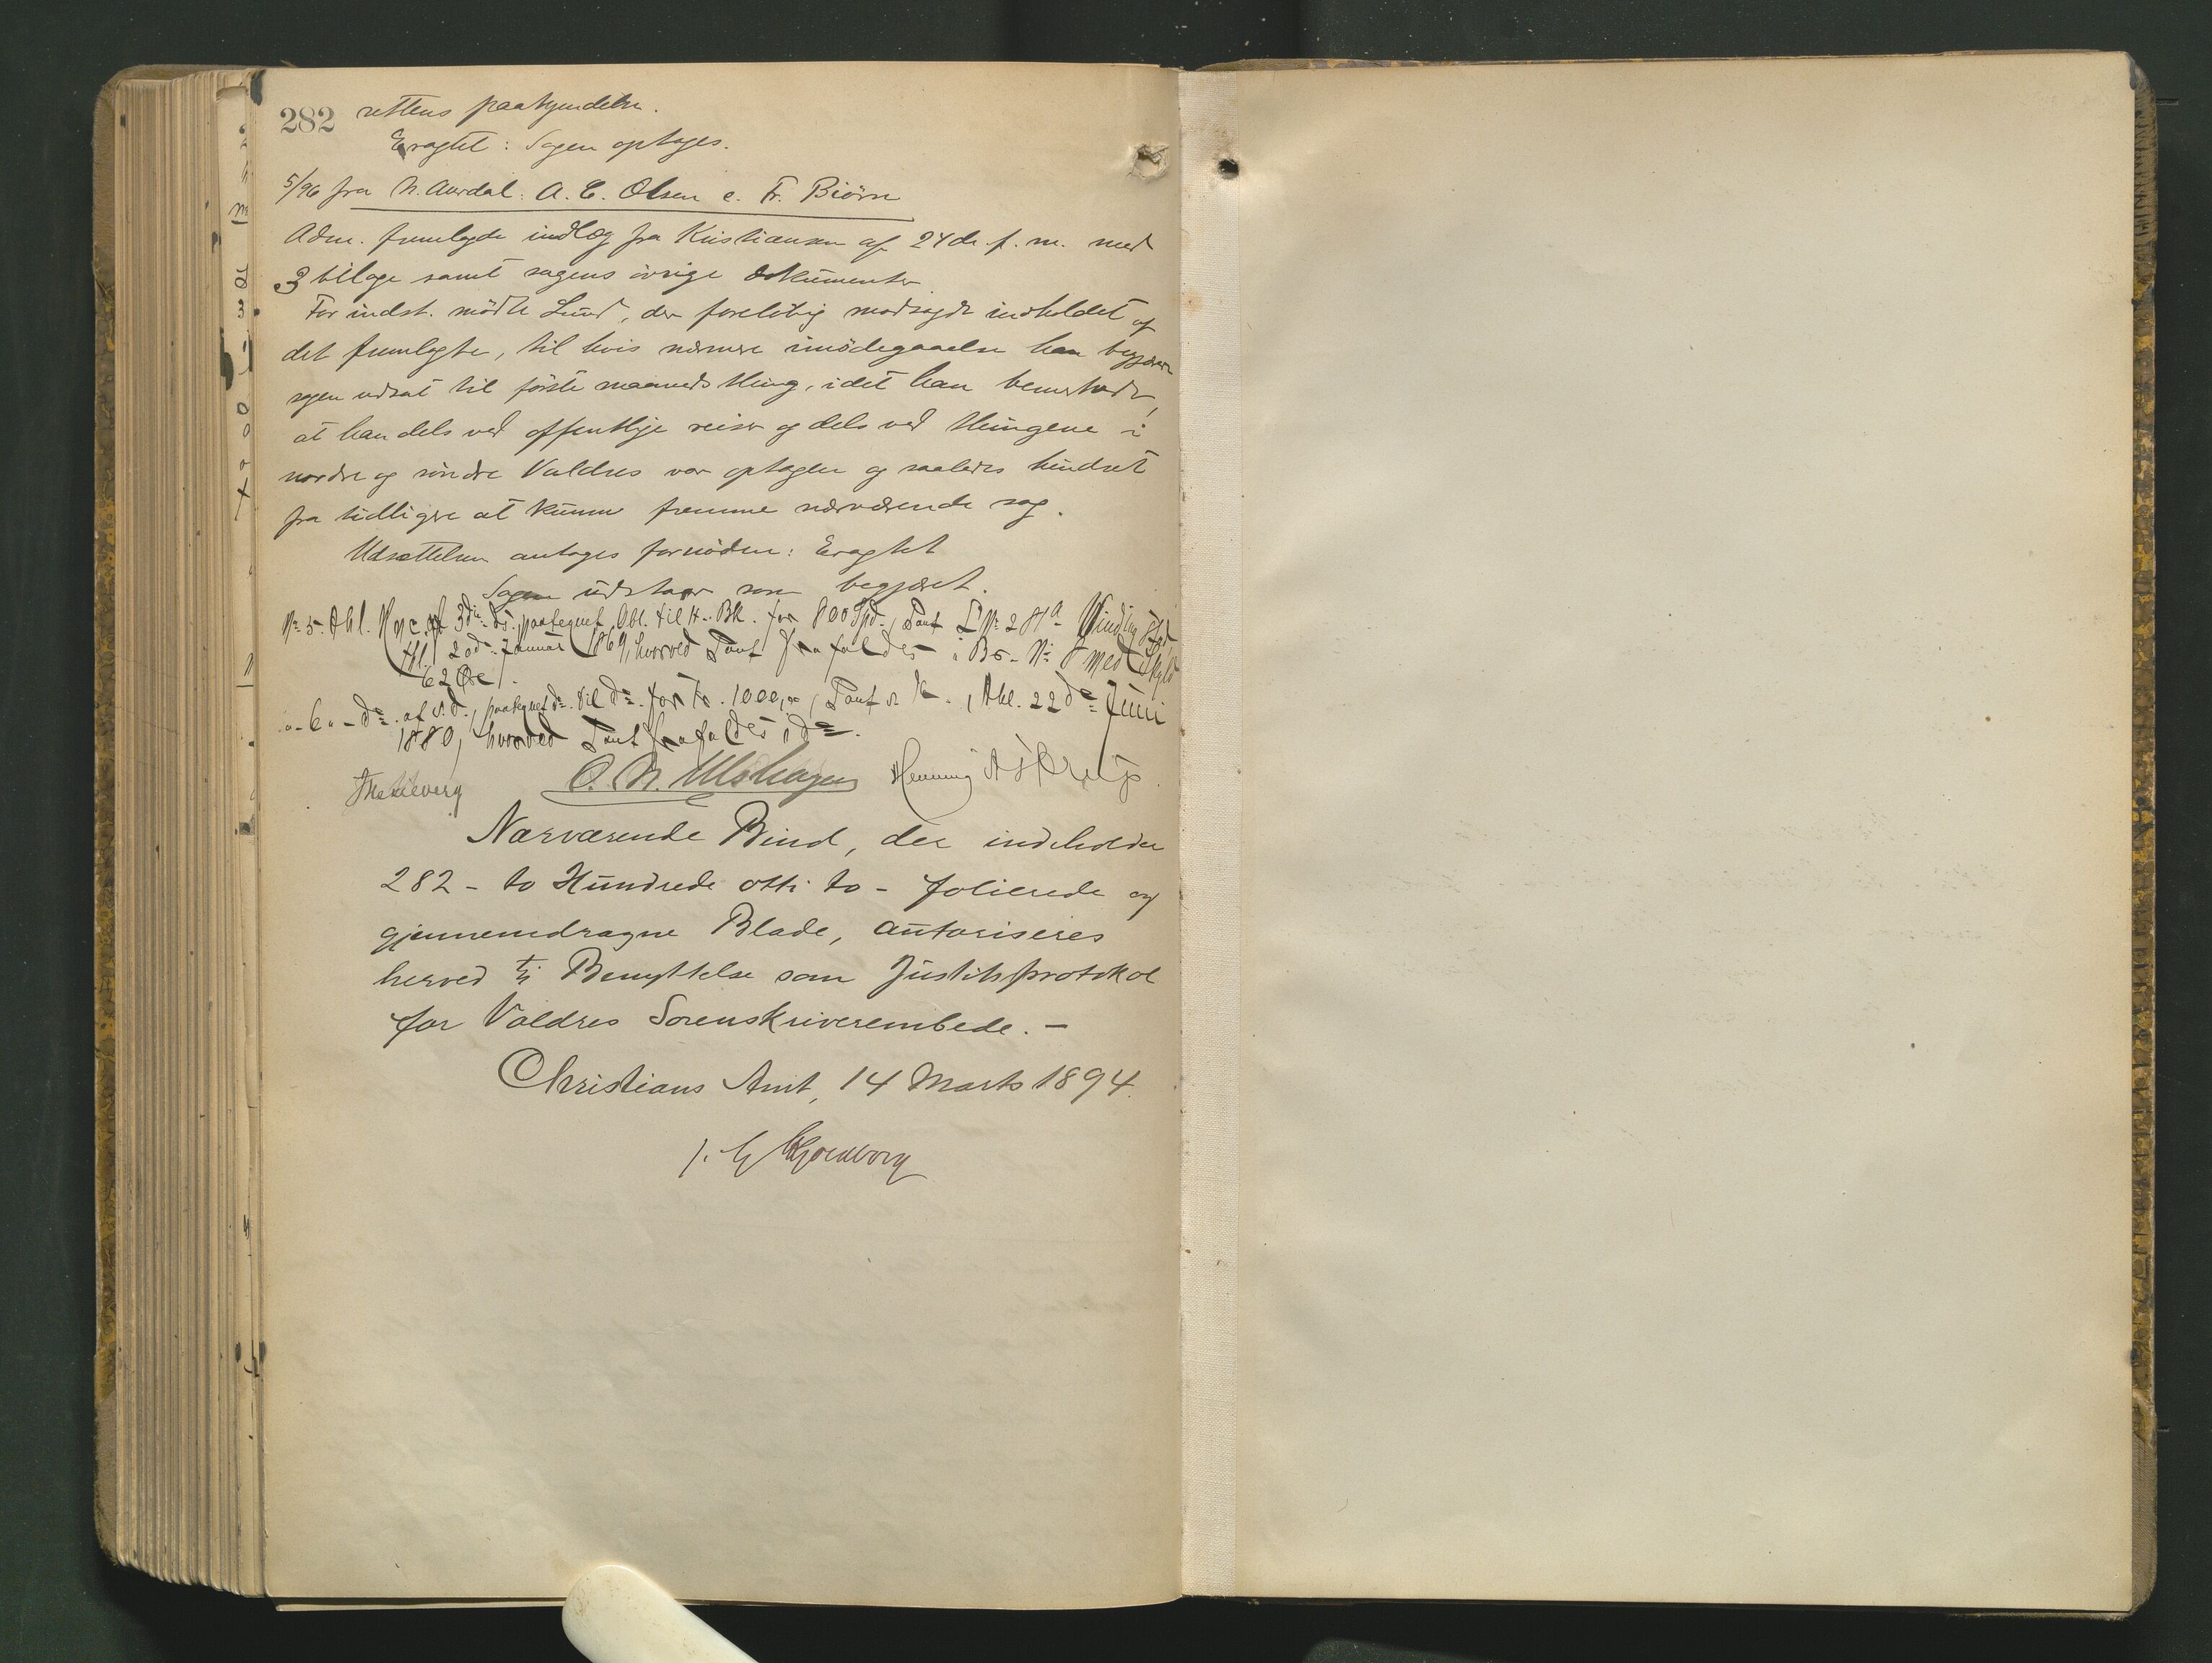 282 rettens paakjendelse.
Eragtet: Sagen optages.
5/96 fra N. Aurdal: A. E. Olsen c. Fr. Biörn
Adm. fremlagde indlæg fra Kristiansen af 24de f. m. med
3 bilage samt sagens övrige dokumenter
For indst. mödte Lund, der forelöbig modsagde indholdet af
det fremlagte, til hvis nærmere imödegaaelse han begjærte
sagen udsat til förste maanedsthing, idet han bemærkede,
at han dels ved offentlige reiser og dels ved thingene i
nordre og söndre Valdres var optagen og saaledes hindret
fra tidligere at kunne fremme nærværende sag.
Udsættelsen antages fornöden: Eragtet
Sagen udstaar som begjæret.
No 5. Afl. af 3die ds. paategnet Obl. til H. Bk. for 800 Spd., Pant L No 281a
thl. 20de Januar 1869, hvorved Pant frafaldes i Br. No 8 med Skyld
62 Øre.
"- 6 "- do. af s. d., paategnet do. til do. for Kr. 1000,00, Pant , thl. 22de Juni
1880, hvorved Pant frafaldes i do.
O. N. Ulshagen Henning
Nærværende Bind, der indeholder
282 - to Hundrede otti to - folierede og
gjennemdragne Blade, autoriseres
herved til Benyttelse som Justitsprotokol
for Valdres Sorenskriverembede. -
Christians Amt, 14 Marts 1894.